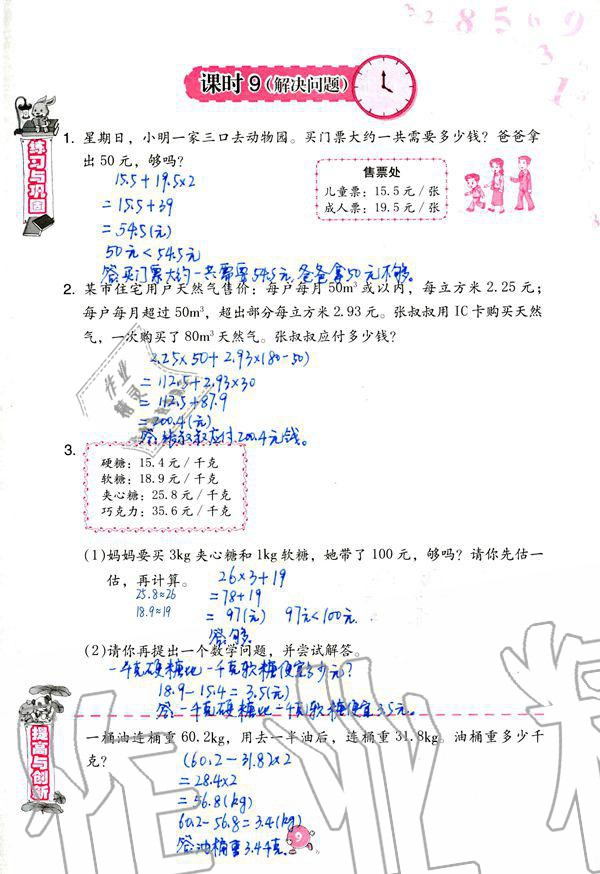 3 2 8 5 6 9
3
1
课时 9（解决问题）
练习与巩固
1. 星期日，小明一家三口去动物园。买门票大约一共需要多少钱？爸爸拿
出 50 元，够吗？
售票处
儿童票：15.5 元 / 张
成人票：19.5 元 / 张
15.5+19.5×2
=15.5+39
=54.5(元)
50元<54.5元
答:买门票大约一共需要54.5元,爸爸拿50元不够。
2. 某市住宅用户天然气售价：每户每月 50m³ 或以内，每立方米 2.25 元；
每户每月超过 50m³，超出部分每立方米 2.93 元。张叔叔用 IC 卡购买天然
气，一次购买了 80m³ 天然气。张叔叔应付多少钱？
2.25×50+2.93×(80-50)
=112.5+2.93×30
=112.5+87.9
=200.4(元)
答:张叔叔应付200.4元钱。
作业
精灵
3.
硬糖：15.4 元 / 千克
软糖：18.9 元 / 千克
夹心糖：25.8 元 / 千克
巧克力：35.6 元 / 千克
(1)妈妈要买 3kg 夹心糖和 1kg 软糖，她带了 100 元，够吗？请你先估一
估，再计算。
25.8≈26
18.9≈19
26×3+19
=78+19
=97(元) 97元<100元
答:够。
(2)请你再提出一个数学问题，并尝试解答。
一千克硬糖比一千克软糖便宜多少元?
18.9-15.4=3.5(元)
答:一千克硬糖比一千克软糖便宜3.5元。
提高与创新
一桶油连桶重 60.2kg，用去一半油后，连桶重 31.8kg。油桶重多少千
克？
(60.2-31.8)×2
=28.4×2
=56.8(kg)
60.2-56.8=3.4(kg)
答:油桶重3.4千克。
9
作业